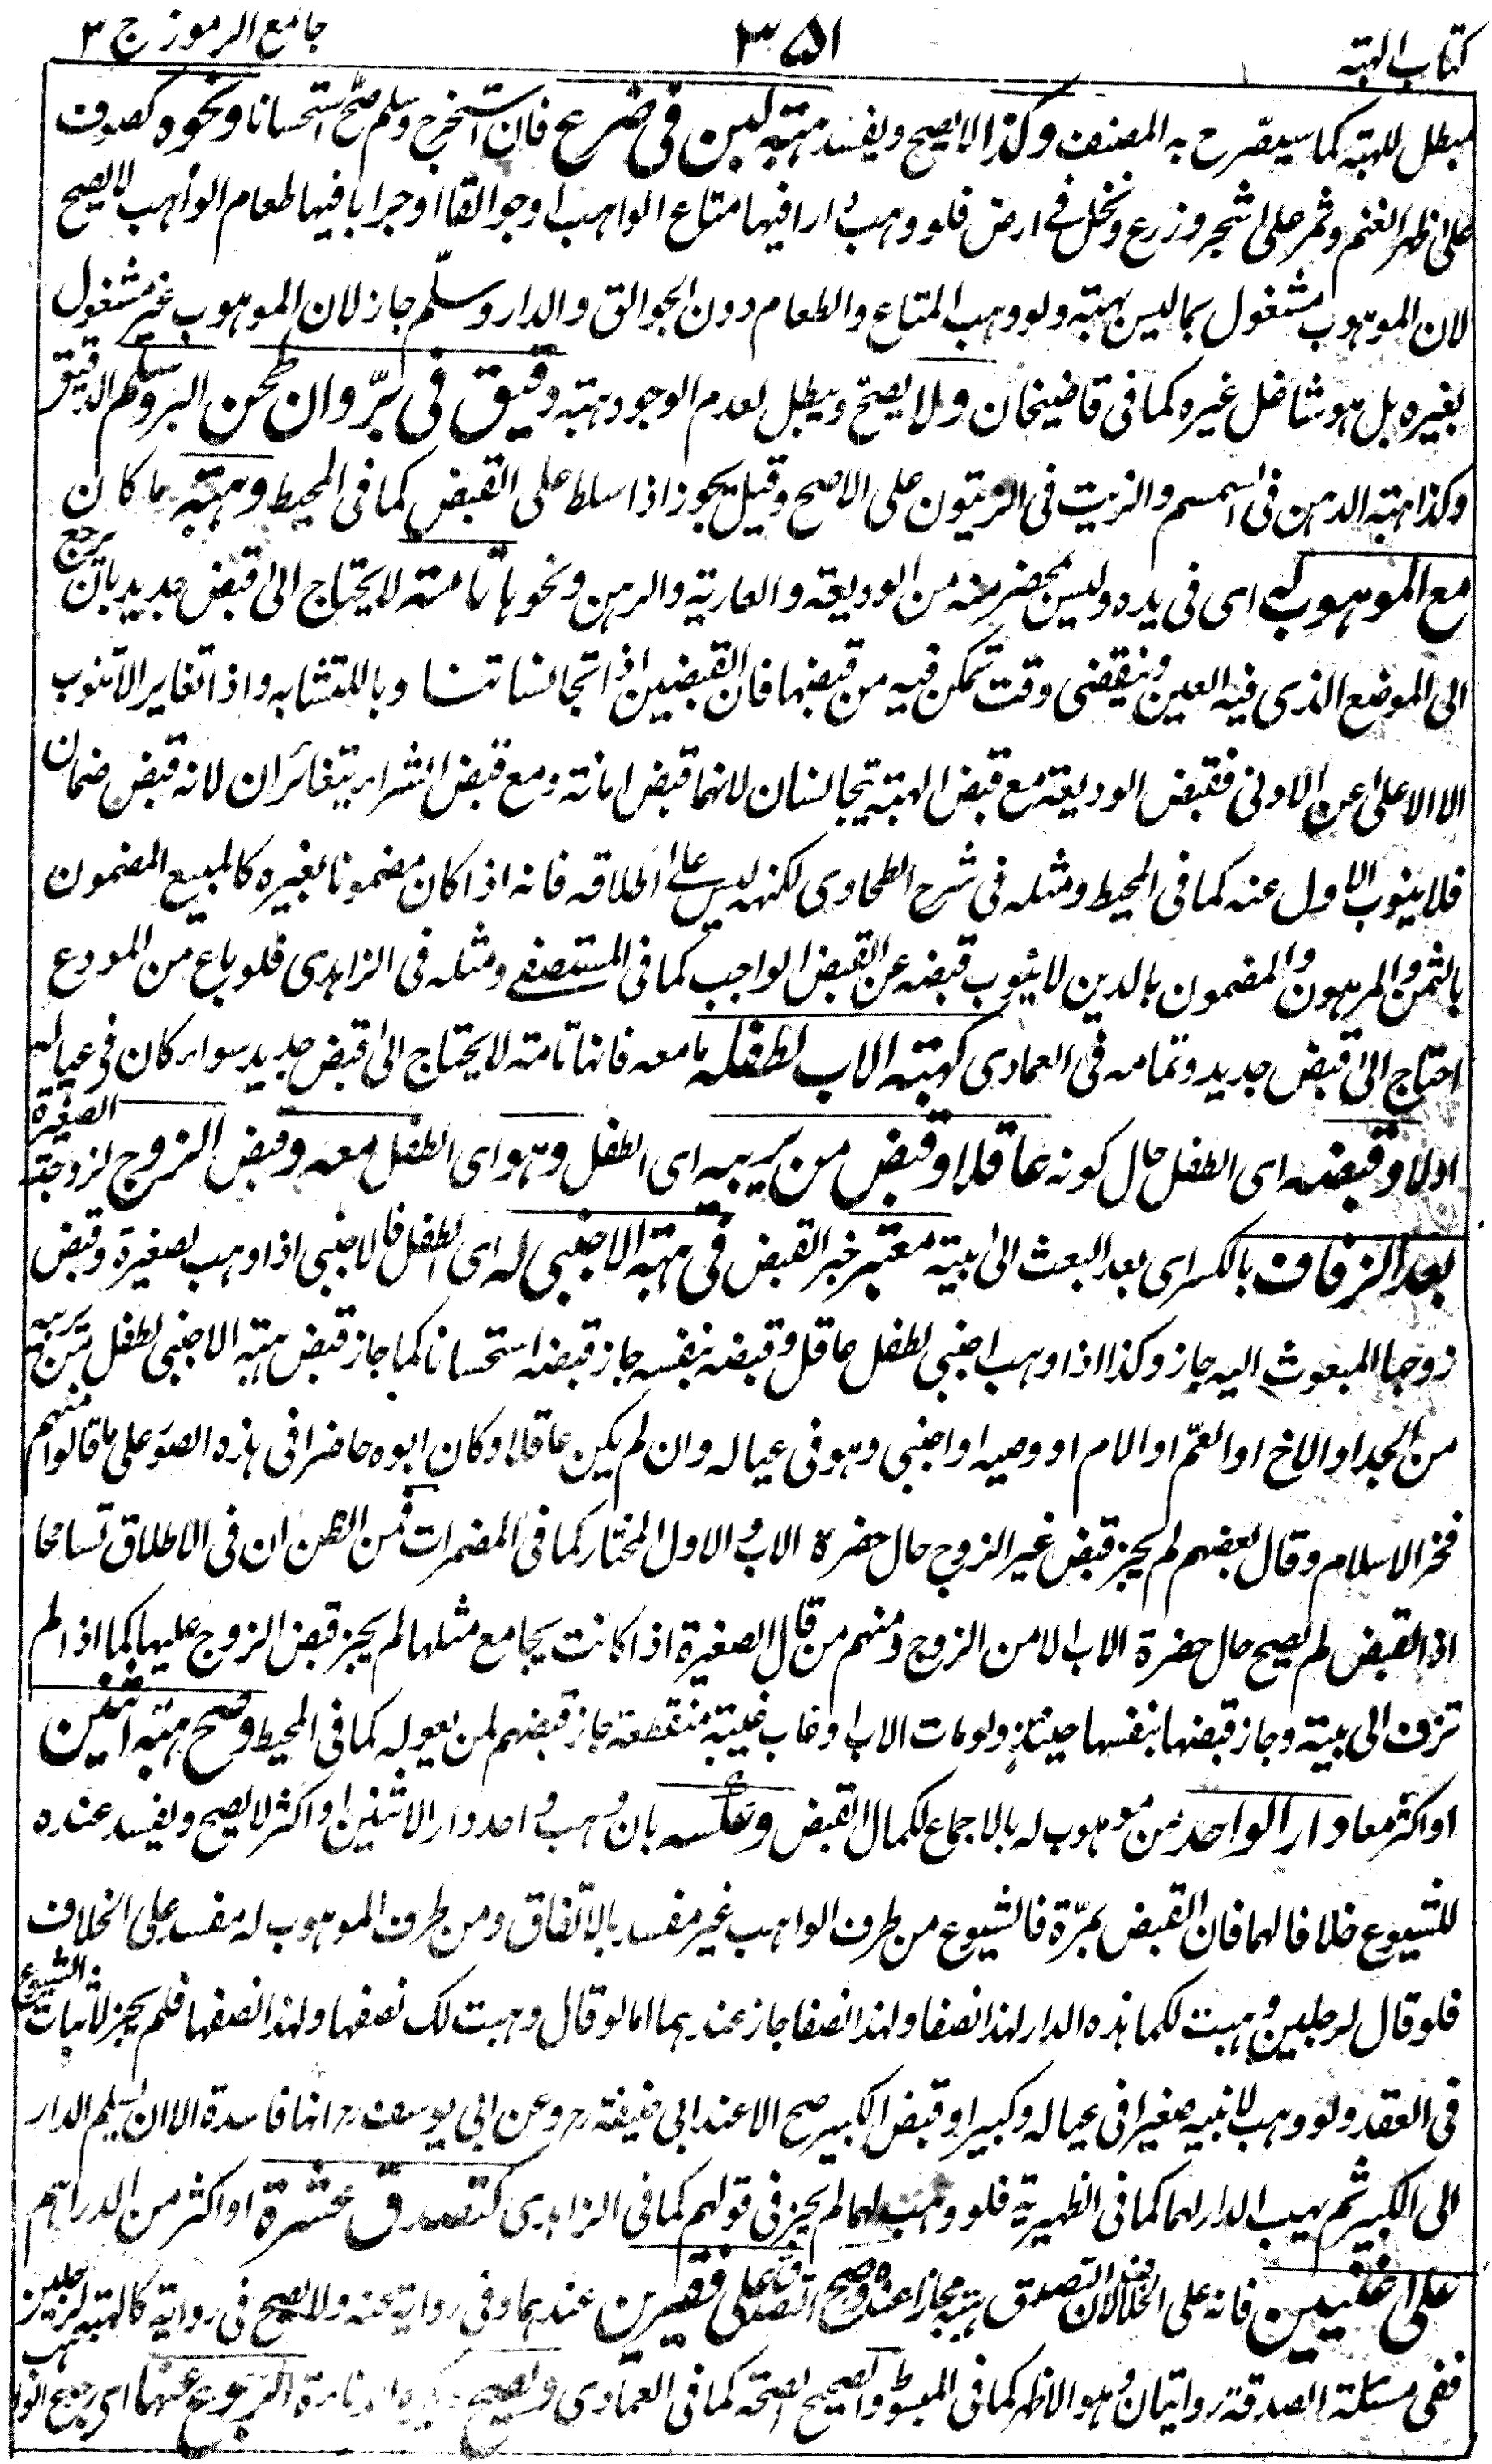 كتاب الهبة ٣٥١ جامع الرموز ج ٣
مبطل للهبة كما سيصرح به المصنف وكذا لا يصح ويفسد هبة لبن في ضرع فان استخرج وسلم صح استحسانا ونحوه كصوف
على ظهر الغنم وثمر على شجر وزرع ونخل في ارض فلو وهب دارا فيها متاع الواهب او جوالقا او جرابا فيها طعام الواهب لا يصح
لان الموهوب مشغول بما ليس بهبة ولو وهب المتاع والطعام دون الجوالق والدار وسلم جاز لان الموهوب غير مشغول
بغيره بل هو شاغل غيره كما في قاضيخان ولا يصح ويبطل لعدم الوجود هبة دقيق في برّ وان طحن البر وسلم الدقيق
وكذا هبة الدهن في السمسم والزيت في الزيتون على الاصح وقيل يجوز اذا سلط على القبض كما في المحيط وهبة ما كان
مع الموهوب له اى في يده وليس بحضر منه من الوديعة والعارية والرهن ونحوها تامة لا يحتاج الى قبض جديد بان يرجع
الى الموضع الذى فيه العين وينقضى وقت تمكن فيه من قبضها فان القبضين اذا تجانسا تنا وبا للتشابه واذا تغاير الا تنوب
الا الا على عن الادنى فقبض الوديعة مع قبض الهبة يتجانسان لانهما قبض امانة ومع قبض الشراء يتغائران لانه قبض ضمان
فلا ينوب الاول عنه كما في المحيط ومثله في شرح الطحاوى لكنه ليس على اطلاقه فانه اذا كان مضمونا بغيره كالمبيع المضمون
بالثمن والمرهون والمضمون بالدين لا ينوب قبضه عن القبض الواجب كما في المستصفى ومثله في الزاهدى فلو باع من المودع
احتاج الى قبض جديد وتمامه في العمادى كهبة الاب لطفله ما معه فانها تامة لا يحتاج الى قبض جديد سواء كان في عياله
اولا وقبضه اى الطفل حال كونه عاقلا او قبض من يربيه اى الطفل وهو اى الطفل معه وقبض الزوج لزوجته الصغيرة
بعد الزفاف بالكسر اى بعد البعث الى بيته معتبر خبر القبض في هبة الاجنبى له اى الطفل فالاجنبى اذا وهب لصغيرة وقبض
زوجها المبعوث اليه جاز وكذا اذا وهب اجنبى لطفل عاقل وقبضه بنفسه جاز قبضه استحسانا كما جاز قبض هبة الاجنبى لطفل من يربيه
من الجد او الاخ او العمّ او الام او وصيه او اجنبى وهو في عياله وان لم يكن عاقلا او كان ابوه حاضرا في هذه الصور على ما قالوا منهم
فخر الاسلام وقال بعضهم لم يجز قبض غير الزوج حال حضرة الاب والاول المختار كما في المضمرات فمن الظن ان في الاطلاق تسامحا
اذ القبض لم يصح حال حضرة الاب الا من الزوج ومنهم من قال الصغيرة اذا كانت يجامع مثلها لم يجز قبض الزوج عليها كما اذا لم
تزف الى بيته وجاز قبضها بنفسها حينئذ ولو مات الاب او غاب غيبة منقطعة جاز قبضهم لمن يعوله كما في المحيط وصح هبة اثنين
او اكثر معا دار الواحد من موهوب له بالاجماع لكمال القبض وعكسه بان وهب واحد دار الاثنين او اكثر لا يصح ويفسد عنده
للشيوع خلافا لهما فان القبض بمرّة فالشيوع من طرف الواهب غير مفسد بالاتفاق ومن طرف الموهوب له مفسد على الخلاف
فلو قال لرجلين وهبت لكما هذه الدار لهذا نصفا ولهذا نصفا جاز عندهما اما لو قال وهبت لك نصفها ولهذا نصفها فلم يجز لاثبات الشيوع
في العقد ولو وهب لابنيه صغيرا في عياله وكبيرا وقبض الكبير صح الا عند ابى حنيفة رح وعن ابى يوسف رح انها فاسدة الا ان يسلم الدار
الى الكبير ثم يهب الدار لهما كما في الظهيرية فلو وهب لهما لم يجز في قولهم كما في الزاهدى كتصدق عشرة او اكثر من الدراهم
على غنيين فانه على الخلاف لان التصدق هبة مجازا عنده وصح التصدق على فقيرين عندهما وفي رواية عنه ولا يصح في رواية كالهبة لرجلين
ففى مسئلة الصدقة روايتان وهو الاظهر كما في المبسوط والصحيح الصحة كما في العمادى ويصح الرجوع عنها اى رجوع